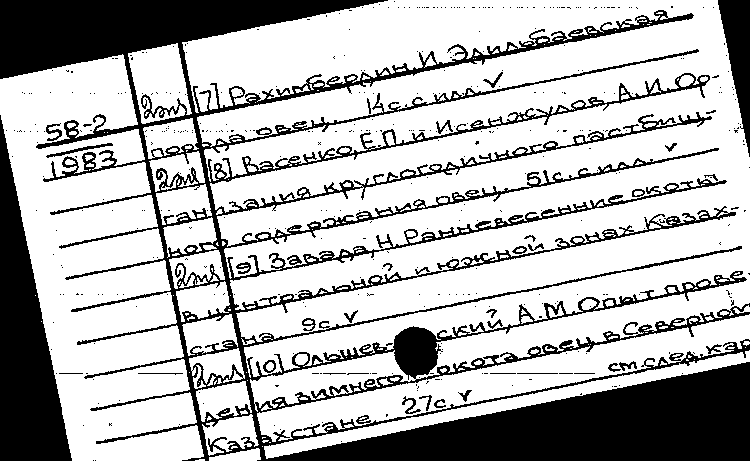 58-2
1983
2экз [7] Рахимбердин, И. Эдильбаевская
порода овец. 14с. с илл. ✓
2экз [8] Васенко, Е.П. и Исенжулов, А.И. Ор-
ганизация круглогодичного пастбищ-
ного содержания овец. 51с. с илл. ✓
2экз [9] Завада, Н. Ранневесенние окоты
в центральной и южной зонах Казах-
стана. 9с. ✓
2экз [10] Ольшев ский, А.М. Опыт прове-
дения зимнего окота овец в Северном
Казахстане. 27с. ✓
см. след. кар